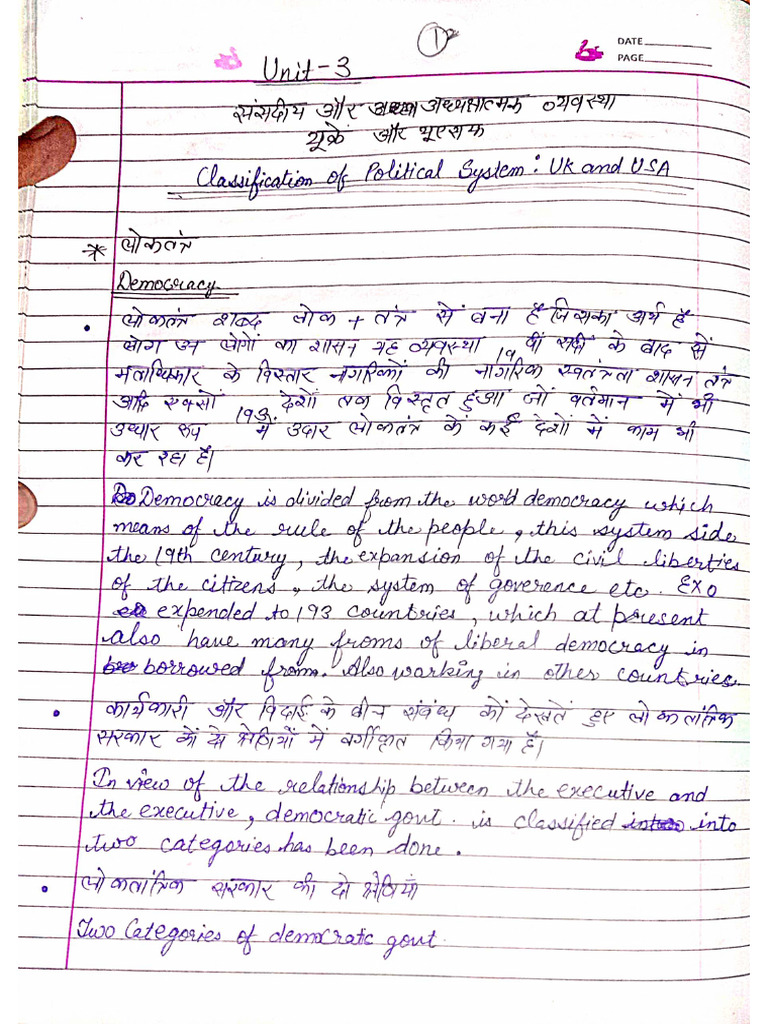 1
DATE
PAGE
Unit-3
संसदीय और अध्यक्षात्मक व्यवस्था
यूके और यूएसए
Classification of Political System: UK and USA
* लोकतंत्र
Democracy
• लोकतंत्र शब्द लोक + तंत्र से बना है जिसका अर्थ है
लोग लोगों का शासन यह व्यवस्था 19 वीं सदी के बाद से
मताधिकार के विस्तार नागरिकों की नागरिक स्वतंत्रता शासन तंत्र
आदि 193 देशों तक विस्तृत हुआ जों वर्तमान में भी
उध्धार रूप में उदार लोकतंत्र कें कई देशों में काम भी
कर रहा है।
Democracy is divided from the word democracy which
means of the rule of the people, this system side
the 19th century, the expansion of the civil liberties
of the citizens, the system of goverence etc. Exo
expended to 193 countries, which at present
also have many froms of liberal democracy in
borrowed from. Also working in other countries.
• कार्यकारी और विदाई के बीन संबंध कों देखतें हुए लोकतांत्रिक
सरकार कों दो श्रेणियों में वर्गीकृत किया गया है।
In view of the relationship between the executive and
the executive, democratic govt. is classified into
two categories has been done.
• लोकतांत्रिक सरकार की दो श्रेणियाँ
Two Categories of democratic govt.